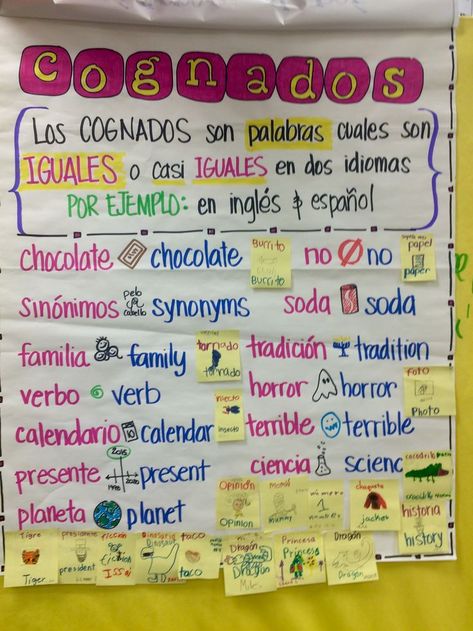 Cognados
Los COGNADOS son palabras cuales son
IGUALES o casi IGUALES en dos idiomas
POR EJEMPLO: en inglés & español
chocolate chocolate
Burrito
Burrito
no no
papel
paper
sinónimos synonyms
pelo
cabello
soda soda
familia family
tornado
tornado
tradición tradition
verbo verb
horror horror
foto
Photo
calendario 10 calendar
insecto
insecto
terrible terrible
presente present
2015
ciencia scienc
cocodrilo
crocodile
planeta planet
Opinión
Opinion
Momi
Mummy
numero
1
number
chaqueta
Jacket
historia
history
Tigre
Tiger
presidente
president
ficción
Dinosaurio
Dinosaur
taco
taco
Dragón
Dragon
Princesa
Princess
Dragón
Dragon